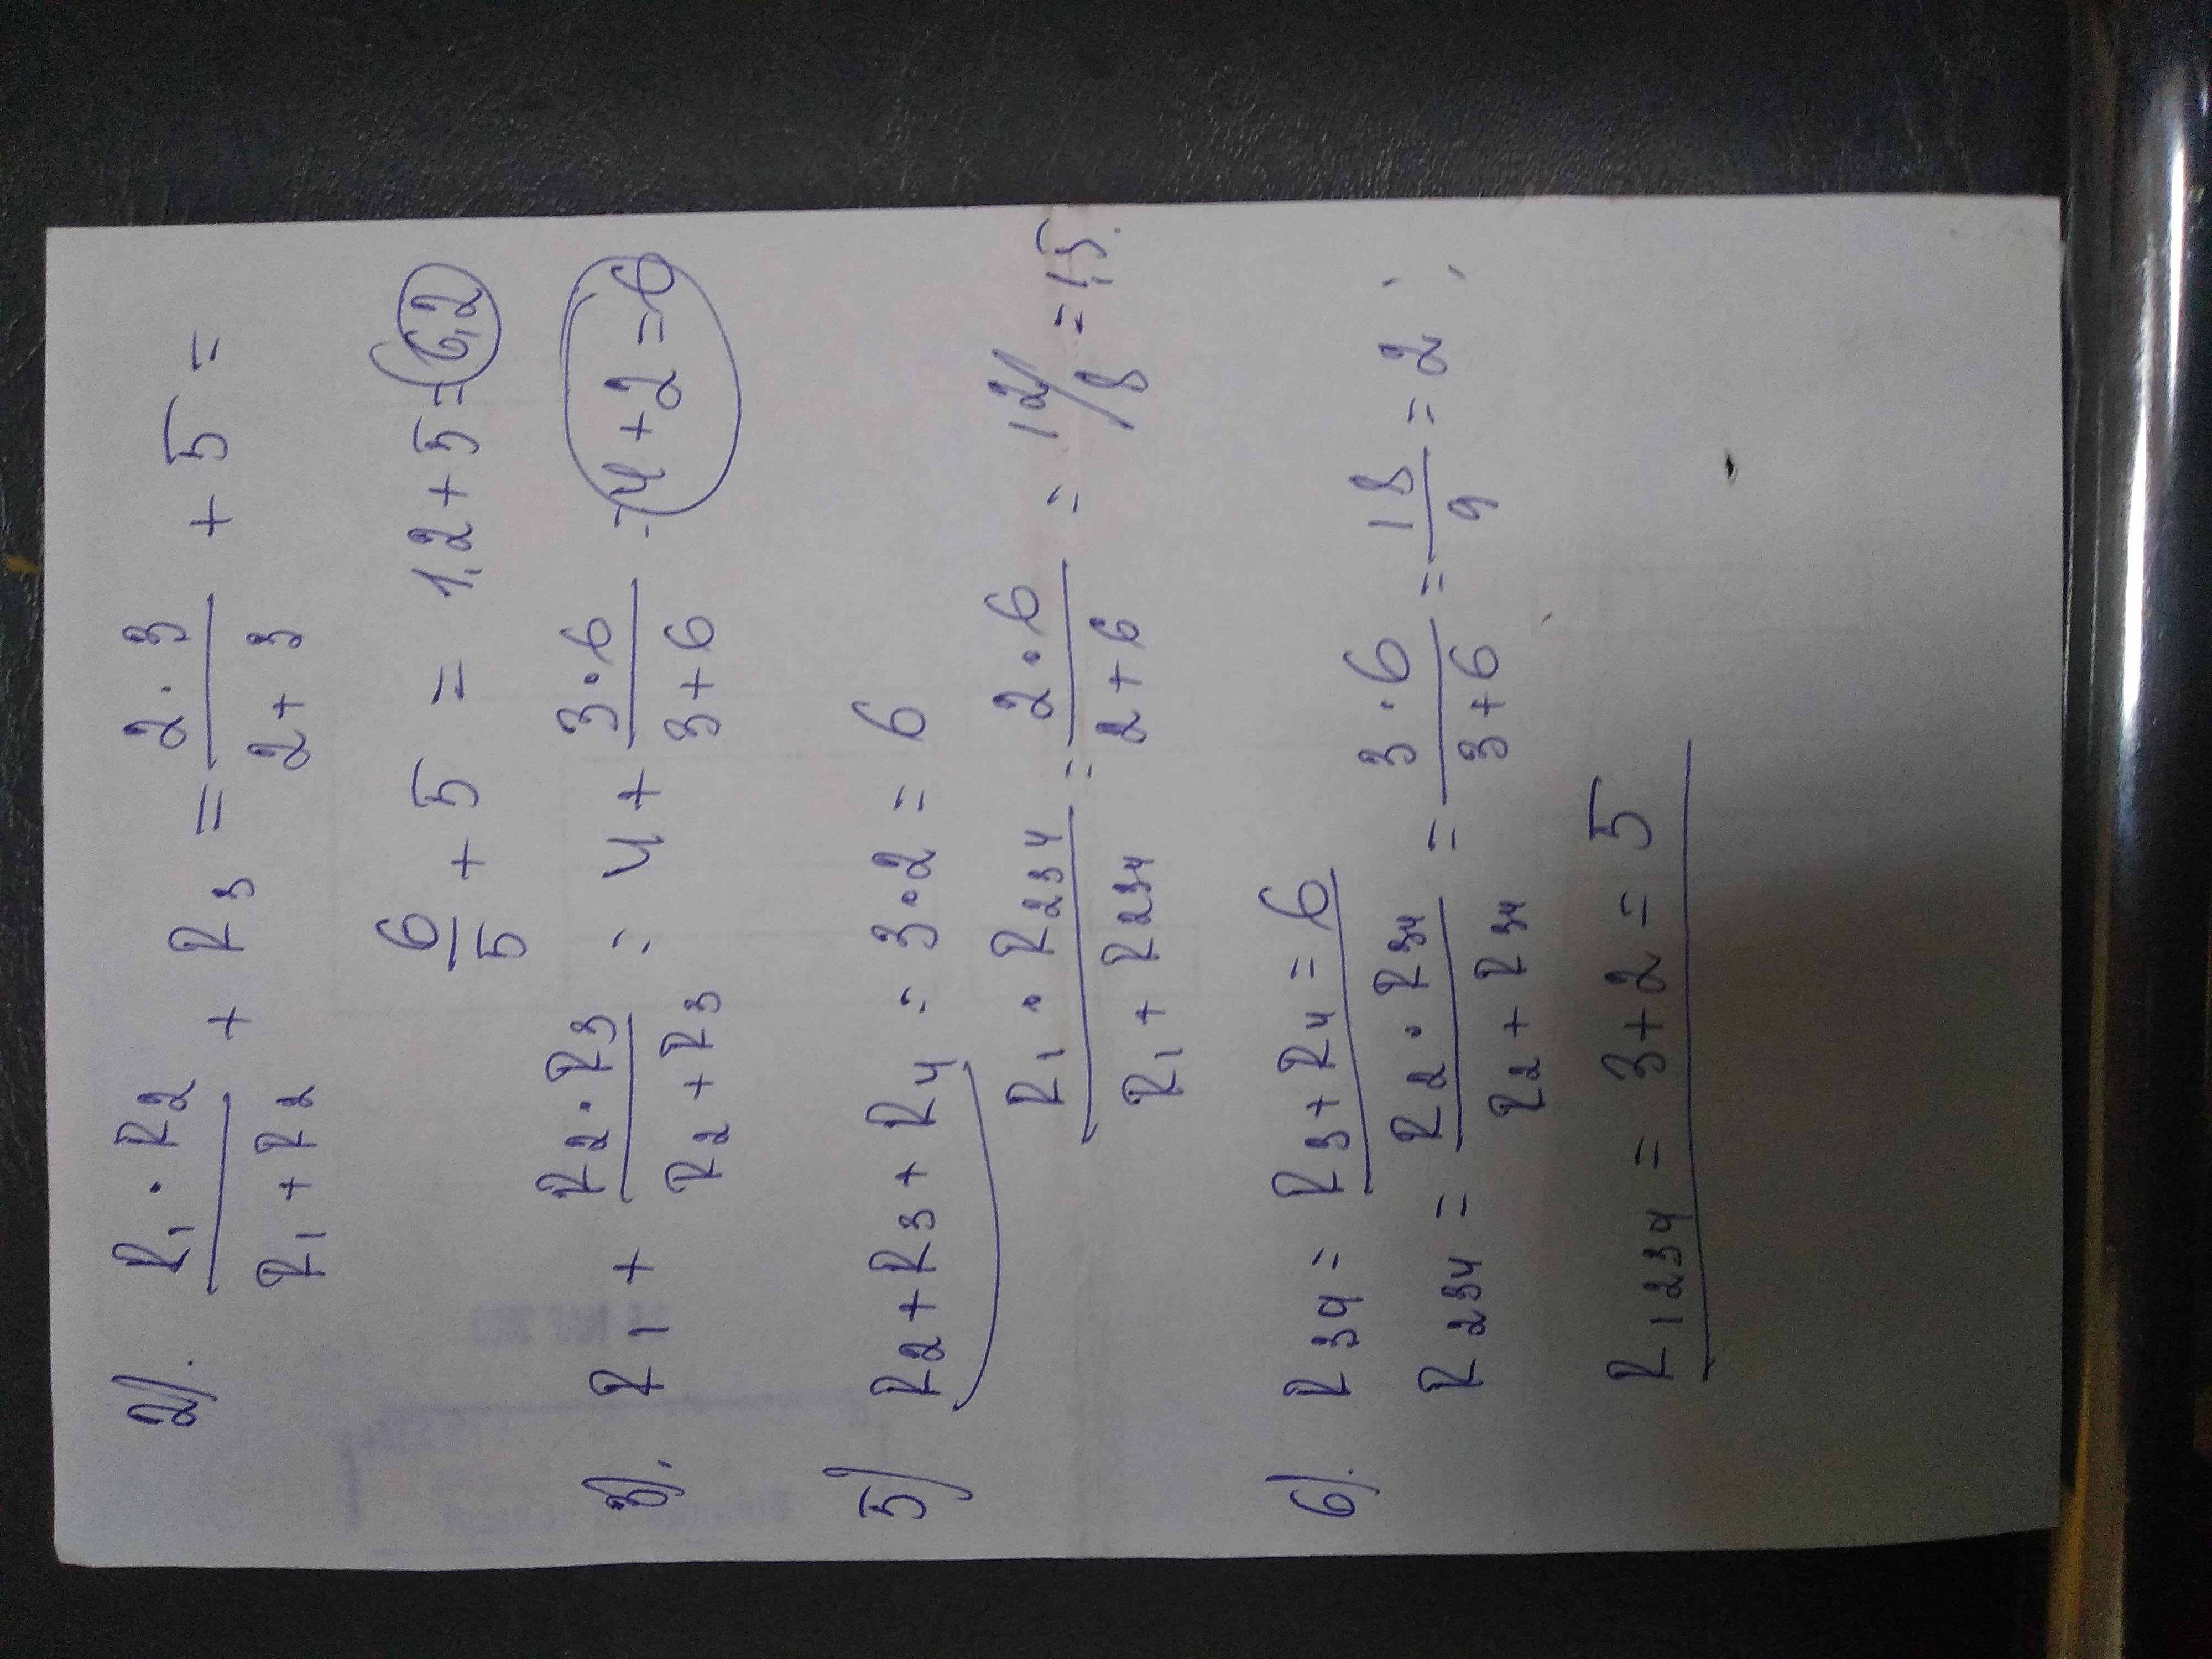 2). R1 · R2 / R1 + R2 + R3 = 2 · 3 / 2 + 3 + 5 =
6/5 + 5 = 1,2 + 5 = 6,2
3). R1 + R2 · R3 / R2 + R3 = 4 + 3 · 6 / 3 + 6 = 4 + 2 = 6
5) R2 + R3 + R4 = 3 · 2 = 6
R1 · R234 / R1 + R234 = 2 · 6 / 2 + 6 = 12/8 = 1,5.
6). R34 = R3 + R4 = 6
R234 = R2 · R34 / R2 + R34 = 3 · 6 / 3 + 6 = 18/9 = 2
R1234 = 3 + 2 = 5